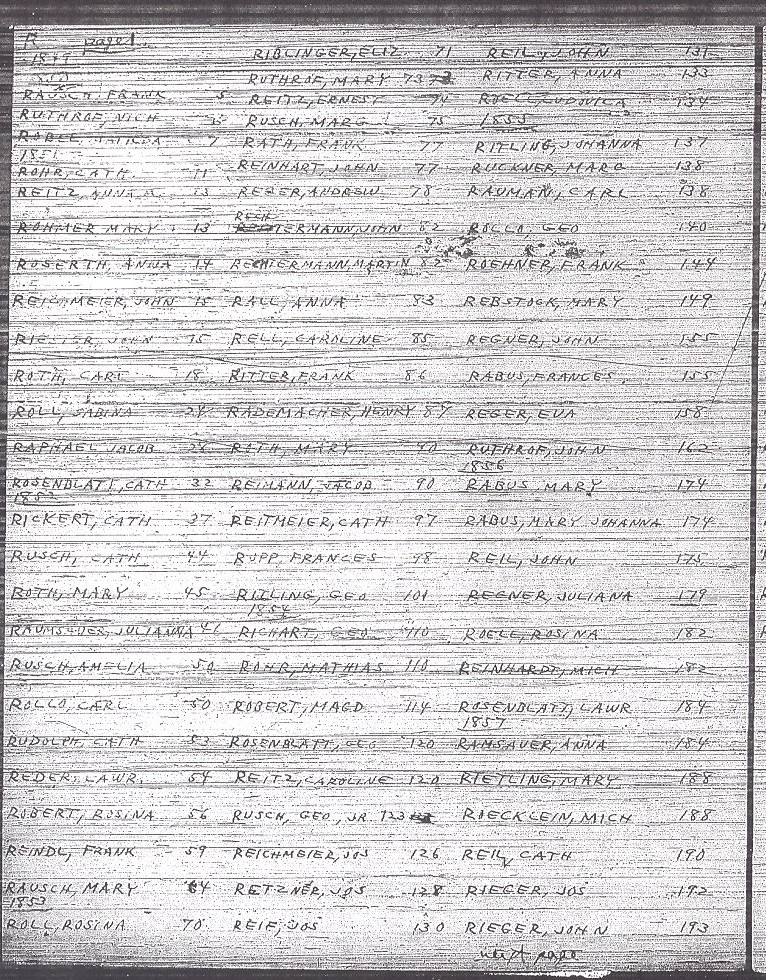 R page 1.
1849
RAUSCH, FRANK 5
RUTHROF, NICH
ROBEL, 7
1851
ROHR, CATH. 11
REITZ, ANNA M. 13
ROHMER MARY 13
ROSERTH, ANNA 14
REICHMEIER, JOHN 15
JOHN 15
ROTH, CARL 18
ROLL, SABINA 24
RAPHAEL JACOB 26
ROSENBLATT, CATH 32
1852
RICKERT, CATH 37
RUSCH, CATH 44
ROTH, MARY 45
RAUMSAUER, JULIANNA 46
RUSCH, AMELIA 50
ROLLO, CARL 50
RUDOLPH, CATH 53
REDER, LAWR. 54
ROBERT, ROSINA 56
REINDL, FRANK 59
RAUSCH, MARY 64
1853
ROLL, ROSINA 70
RIBLINGER, ELIZ 71
RUTHROF, MARY 73
REITZ, ERNEST 74
RUSCH, MARG 75
RATH, FRANK 77
REINHART, JOHN 77
REGER, ANDREW 78
RECH
TERMANN, JOHN 82
RECHTERMANN, MARTIN 82
RALL, ANNA 83
RELL, CAROLINE 85
RITTER, FRANK 86
RADEMACHER, HENRY 87
ROTH, MARY 90
REIMANN, JACOB 90
REITMEIER, CATH 97
RUPP, FRANCES 98
RITLING, GEO 101
1854
RICHART, GEO 110
ROHR, MATHIAS 110
ROBERT, MAGD 114
ROSENBLATT, GEO 120
REITZ, CAROLINE 120
RUSCH, GEO, JR 123
REICHMEIER, JOS 126
RETZNER, JOS 128
REIF, JOS 130
REIL, JOHN 131
RITTER, ANNA 133
ROELL, LUDOVICA 134
1855
RITLING, JOHANNA 137
RUCKNER, MARG 138
RAUMAN, CARL 138
ROLLO, GEO 140
ROEHNER, FRANK 144
REBSTOCK, MARY 149
REGNER, JOHN 155
RABUS, FRANCES 155
REGER, EVA 158
RUTHROF, JOHN 162
1856
RABUS MARY 174
RABUS, MARY JOHANNA 174
REIL, JOHN 175
REGNER, JULIANA 179
ROELL, ROSINA 182
REINHARDT, MICH 182
ROSENBLATT, LAWR 184
1857
RAMSAUER, ANNA 184
RIETLING, MARY 188
ROECKLEIN, MICH 188
REIL, CATH 190
RIEGER, JOS 192
RIEGER, JOHN 193
next page